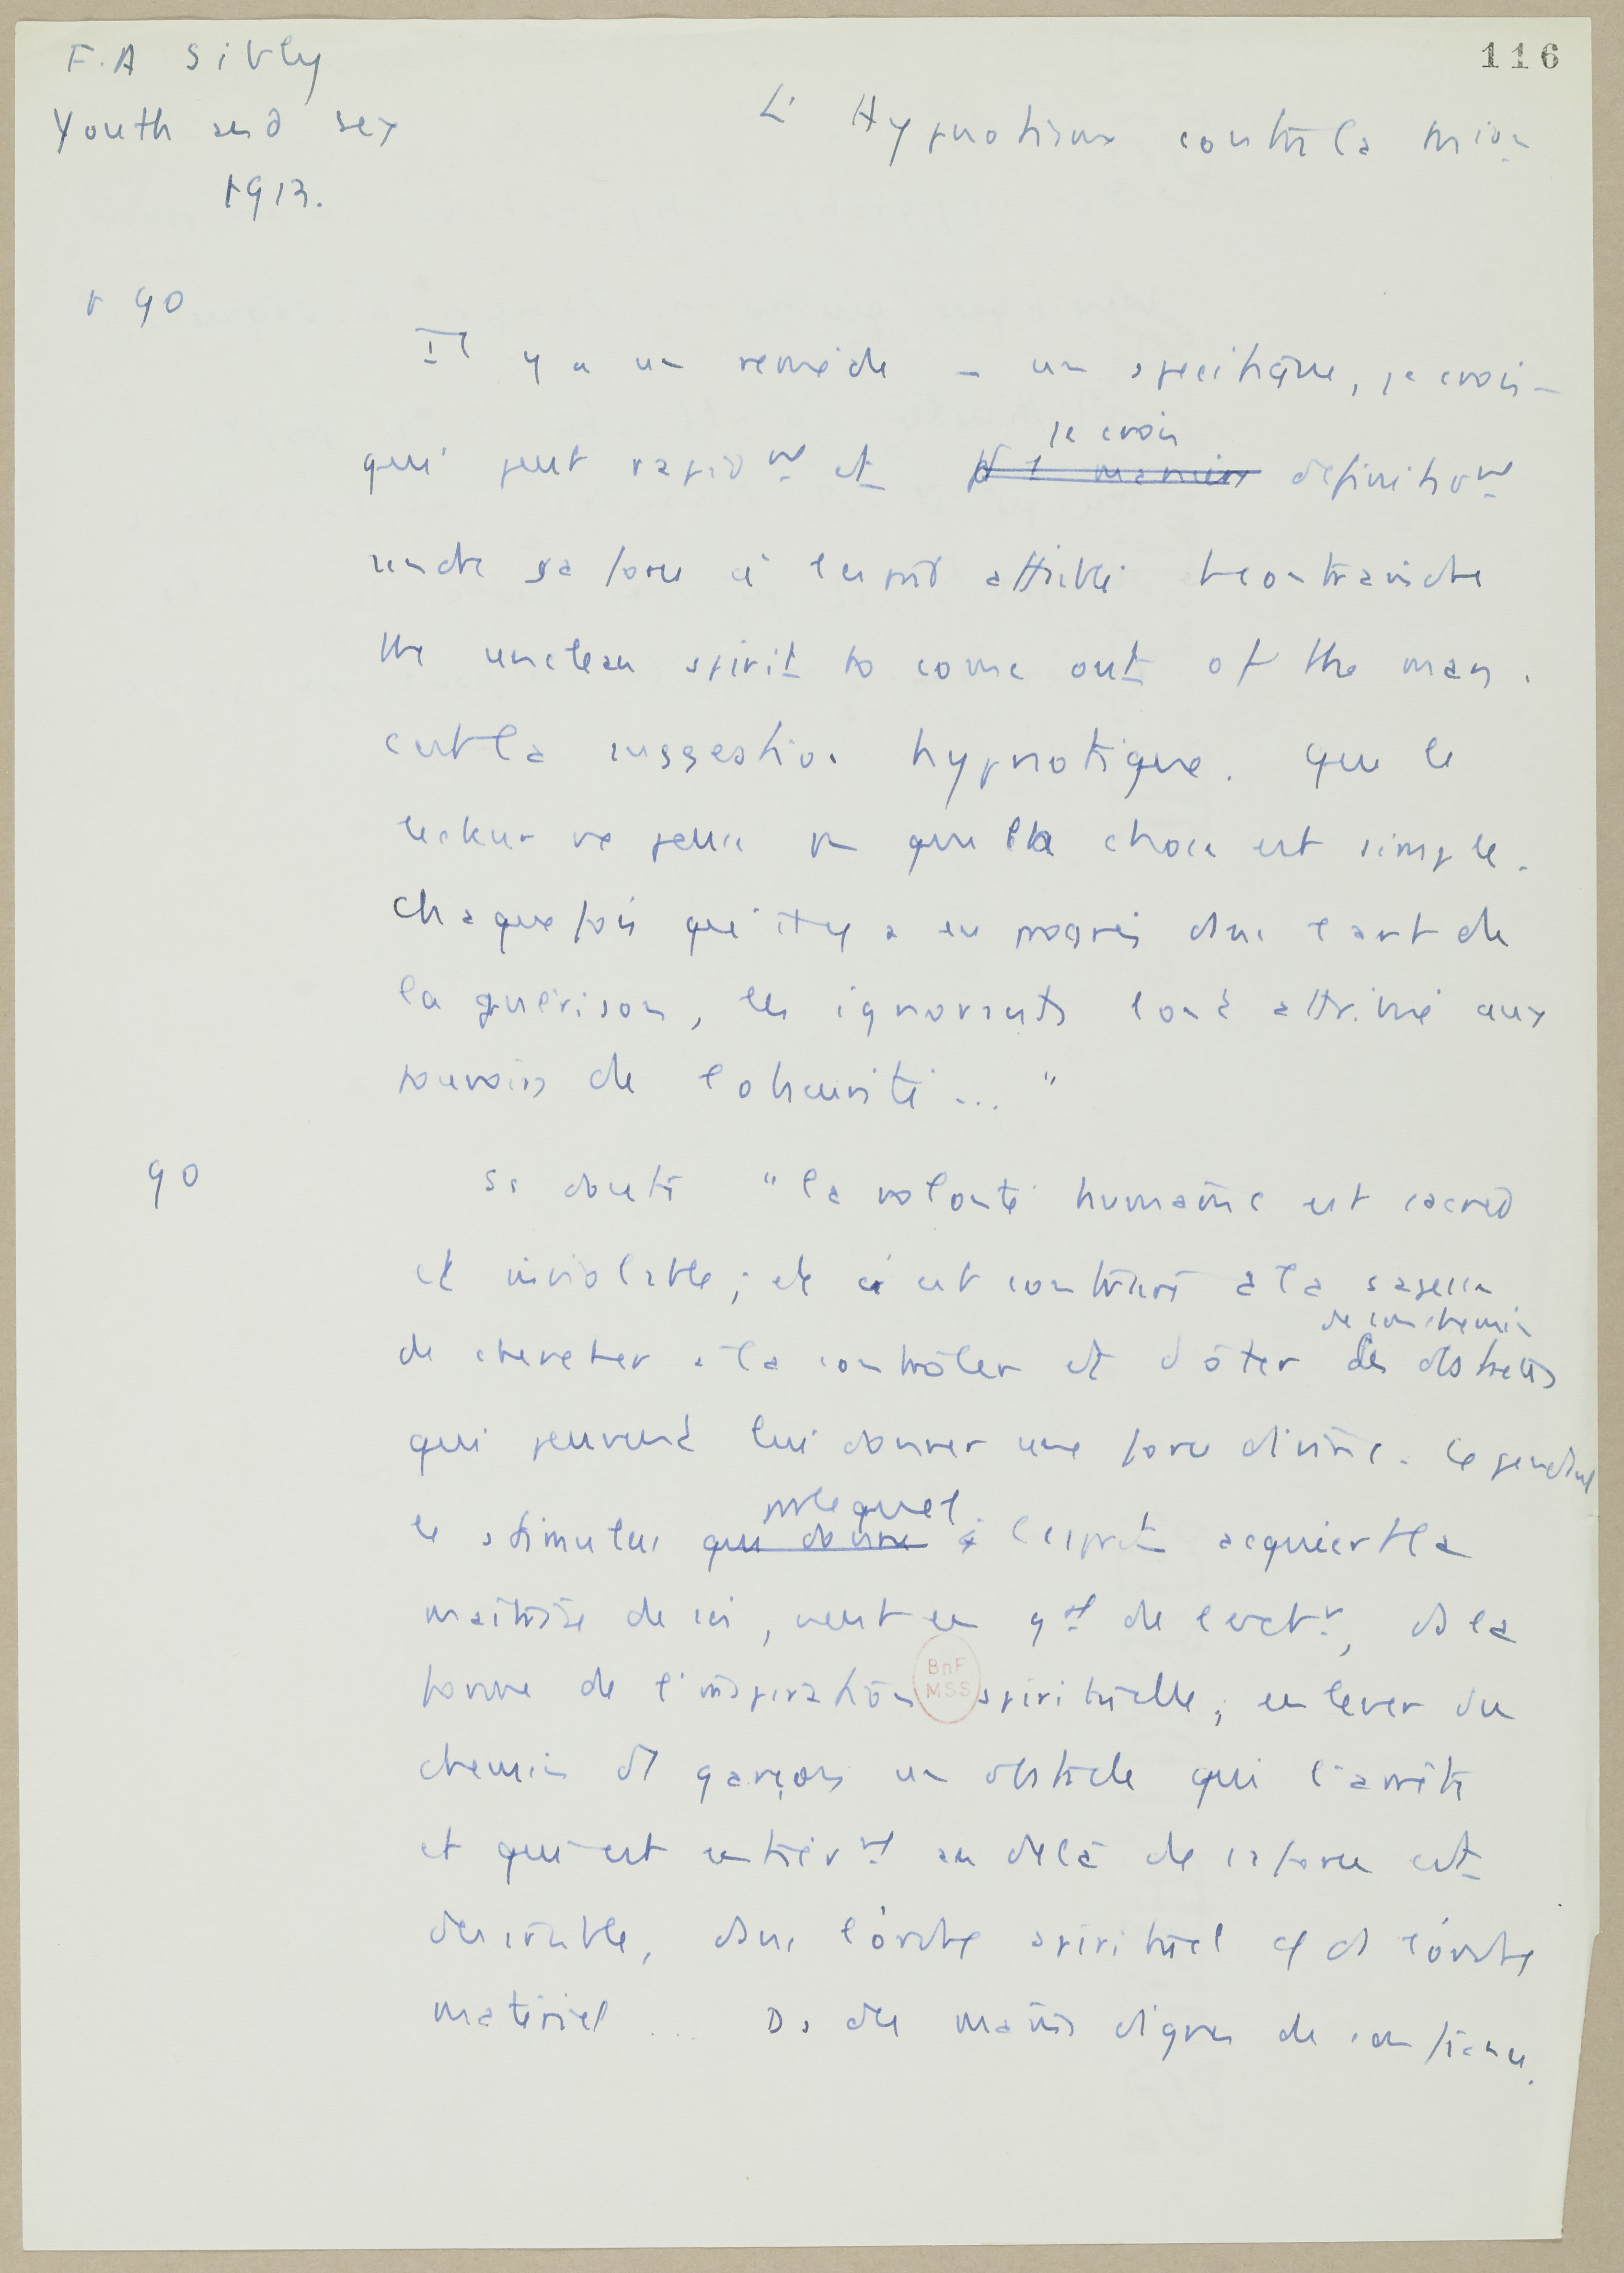 F.A Sibly
Youth and sex
1913.
116
L'Hypnotisme contre la
p 90
Il y a un remède – un specifique, je crois –
qui peut rapidmt et je crois definitivmt
rendre sa force à l'esprit affaibli et contraindre
the unclean spirit to come out of the man.
c'est la suggestion hypnotique. Que le
lecteur ne pense pas que la chose est simple.
Chaque fois qu'il y a eu progrès dans l'art de
la guérison, les ignorants l'ont attribué aux
pouvoirs de l'obscurité ... "
90
Ss doute "la volonté humaine est sacred
et inviolable; et il est contraire à la sagesse
de chercher à la contrôler et d'ôter de son chemin des obstacles
qui peuvent lui donner une force divine. Cependant
le stimulus qui donne par lequel l'esprit acquiert la
maîtrise de soi, vient en gal de l'extr, ds la
forme de l'inspiration spirituelle; enlever du
chemin d'1 garçon un obstacle qui l'arrête
et qui est entièrmt au delà de sa force est
desirable, dans l'ordre spirituel et ds l'ordre
matériel ... Ds des mains dignes de confiance.
BnF
MSS